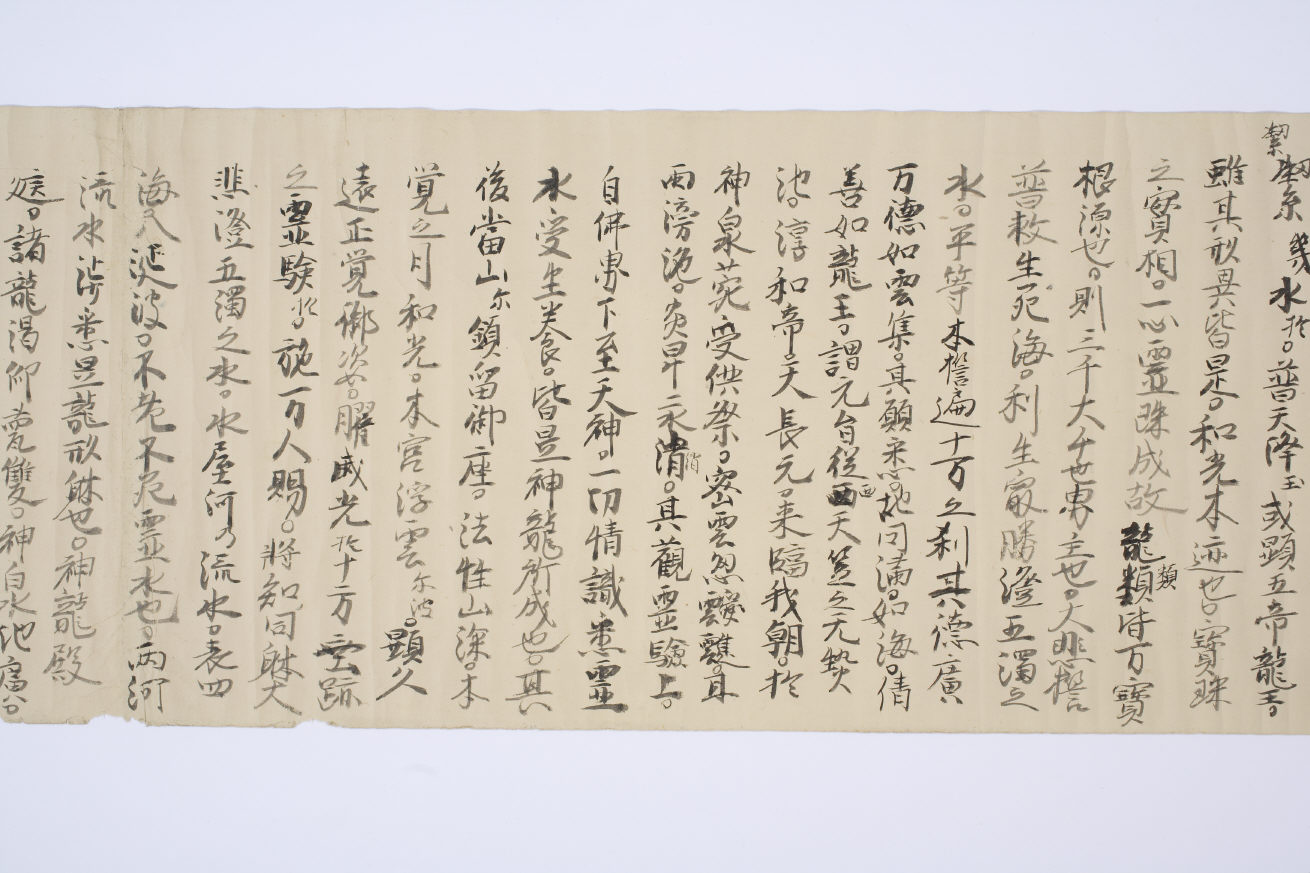 絜
絜幾水於。普天降玉或顕五帝龍王。
雖其形異皆是。和光本迹也。寳珠
之寳相。一心霊珠成故龍類皆万寳
類
根源也。則三千大千世専主也。大悲誓
普救生死海。利生最勝澄五濁之
水。平等本誓遍十方之刹其徳廣
万徳如雲集。其願悉地同満。如海。倩
善如龍王。謂元自従西天笠之无熱
西
池。淳和帝。天長元。来臨我朝。於
神泉苑受供祭。密雲忽靉靆。耳
雨滂沲。炎旱永消。其観霊験上。
消
自仏専下至天神。一切情識悉霊
水受生養食。皆是神龍所成也。其
後當山尓鎮留御座。法性山深。本
覚之月和光。本宮浮雲尓波。顕久
遠正覚御姿。曜威光於十方霊跡
之霊験於。施一万人賜。将知同躰大
悲澄五濁之水。水屋河乃流水。表四
海入波。不老不死霊水也。両河
流水沙悉是龍形躰也。神龍殿
庭。諸龍渇仰雙。神自水池